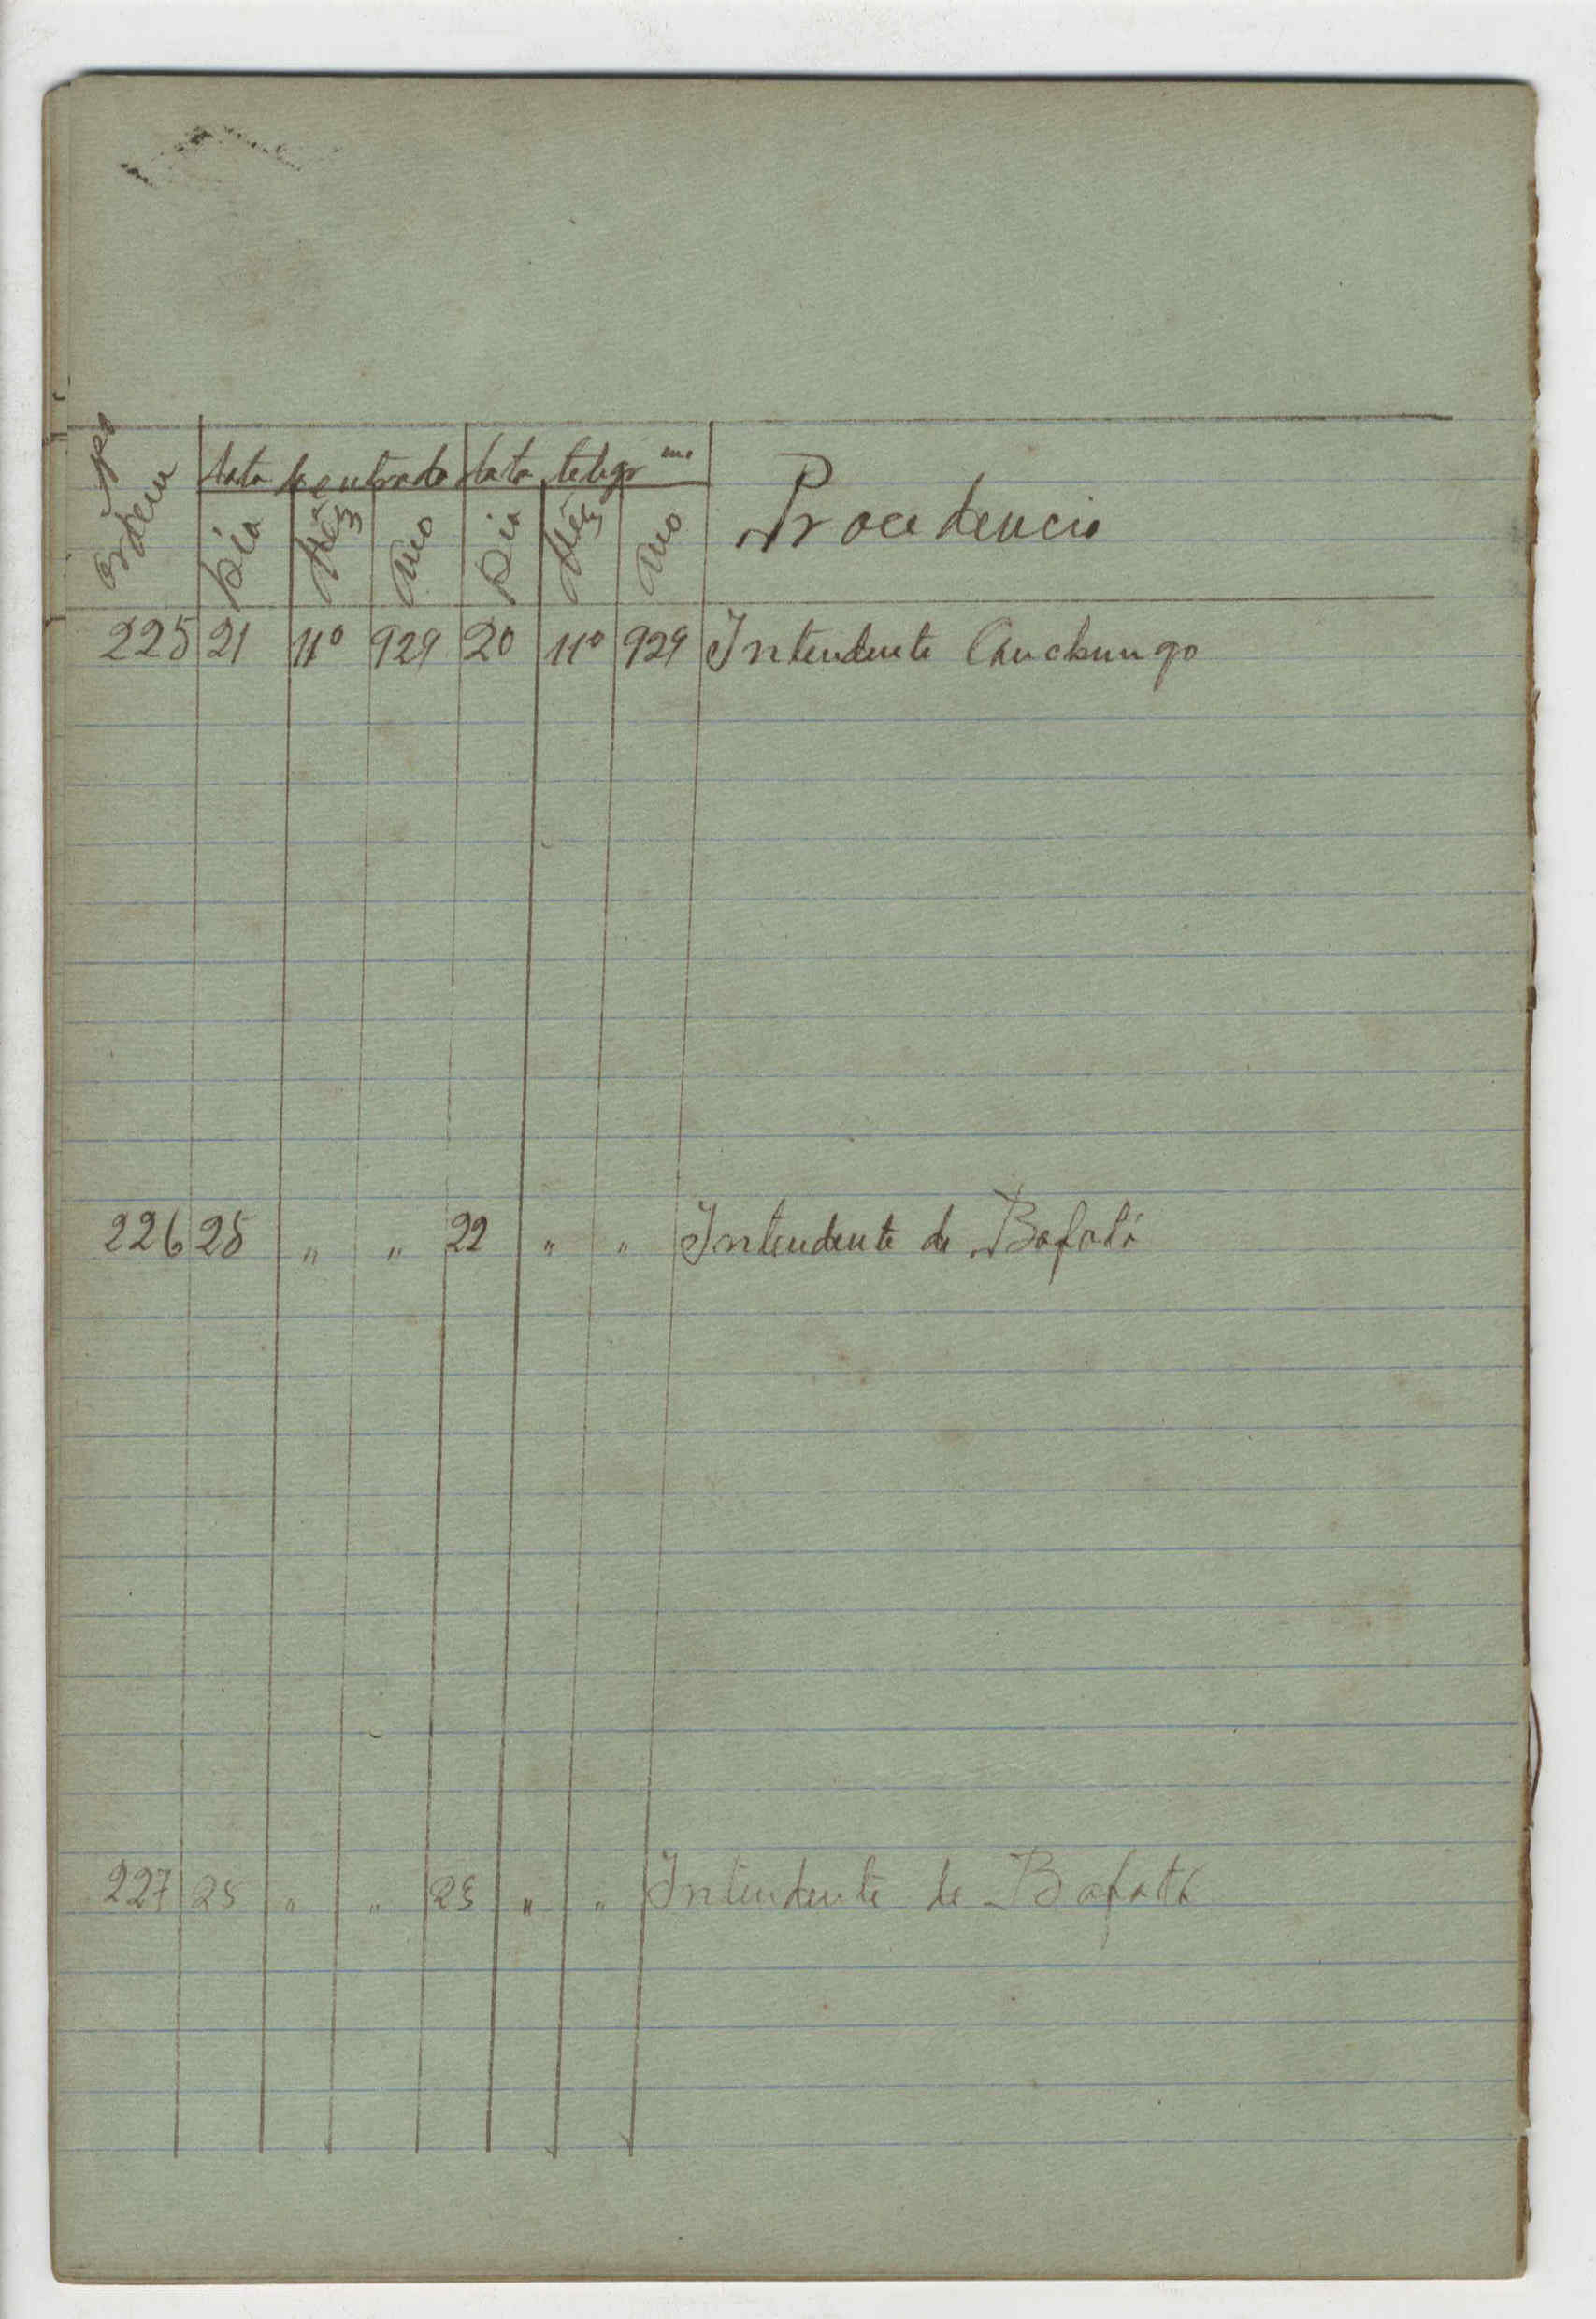 Nº Ordem
Data da entrada Data telegr.ma
Dia Mês Ano Dia Mês Ano Procedencia
225 21 11º 929 20 11º 929 Intendente Canchungo
226 25 " " 22 " " Intendente de Bafatá
227 25 " " 23 " " Intendente de Bafatá